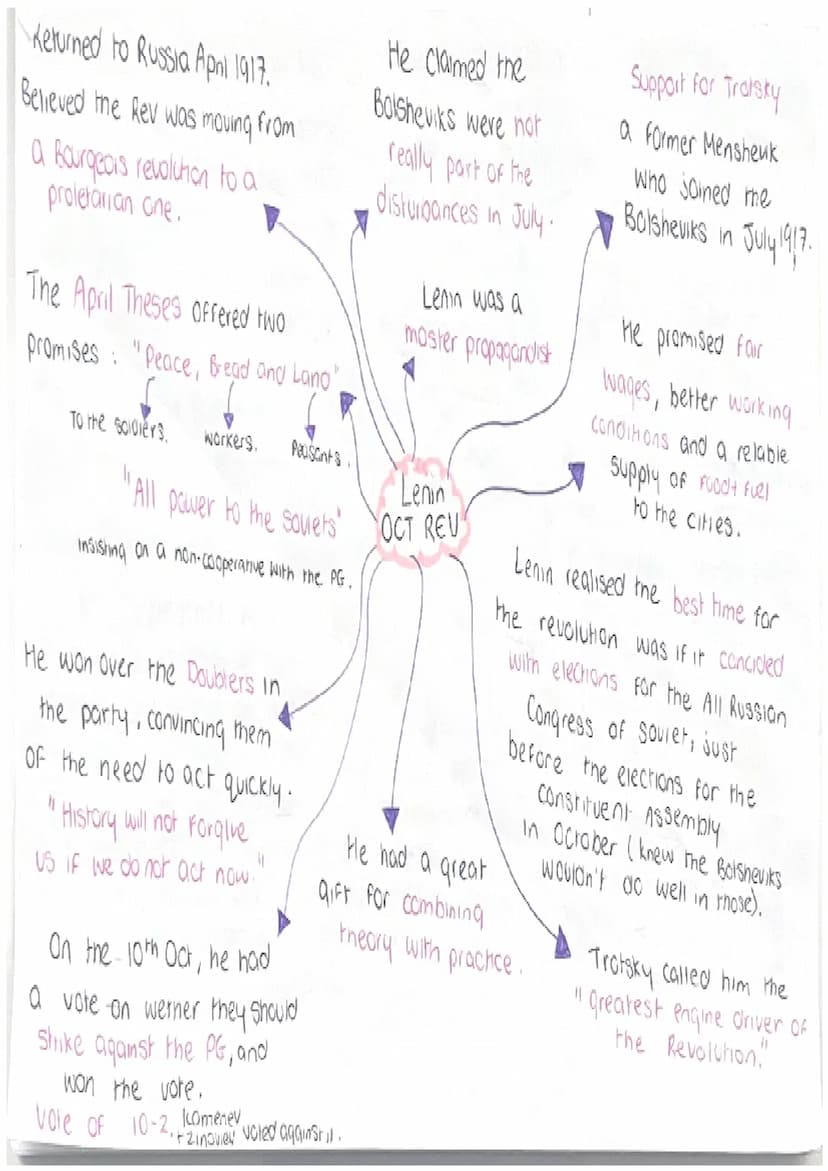 Returned to Russia April 1917.
Believed the Rev was moving from
a Bourgeois revolution to a
proletarian one.
He claimed the
Bolsheviks were not
really part of the
disturbances in July.
Support for Trotsky
a former Menshevik
who joined the
Bolsheviks in July 1917.
The April Theses offered two
promises: "Peace, Bread and Land"
To the soldiers.
workers.
Peasants.
"All power to the soviets"
insisting on a non-cooperative with the PG.
Lenin was a
master propagandist
He promised fair
wages, better working
conditions and a relable
supply of food + fuel
to the cities.
Lenin
OCT REV
Lenin realised the best time for
the revolution was if it concided
with elections for the All Russian
Congress of Soviet, just
before the elections for the
constituent Assembly
in October (knew the Bolsheviks
wouldn't do well in those).
He won over the Doubters in
the party, convincing them
of the need to act quickly.
"History will not forgive
us if we do not act now."
He had a great
gift for combining
theory with practice.
On the 10th Oct, he had
a vote on wether they should
strike against the PG, and
won the vote.
Vote of 10-2. Kamenev
+ Zinoviev voted against it.
Trotsky called him the
"greatest engine driver of
the Revolution."